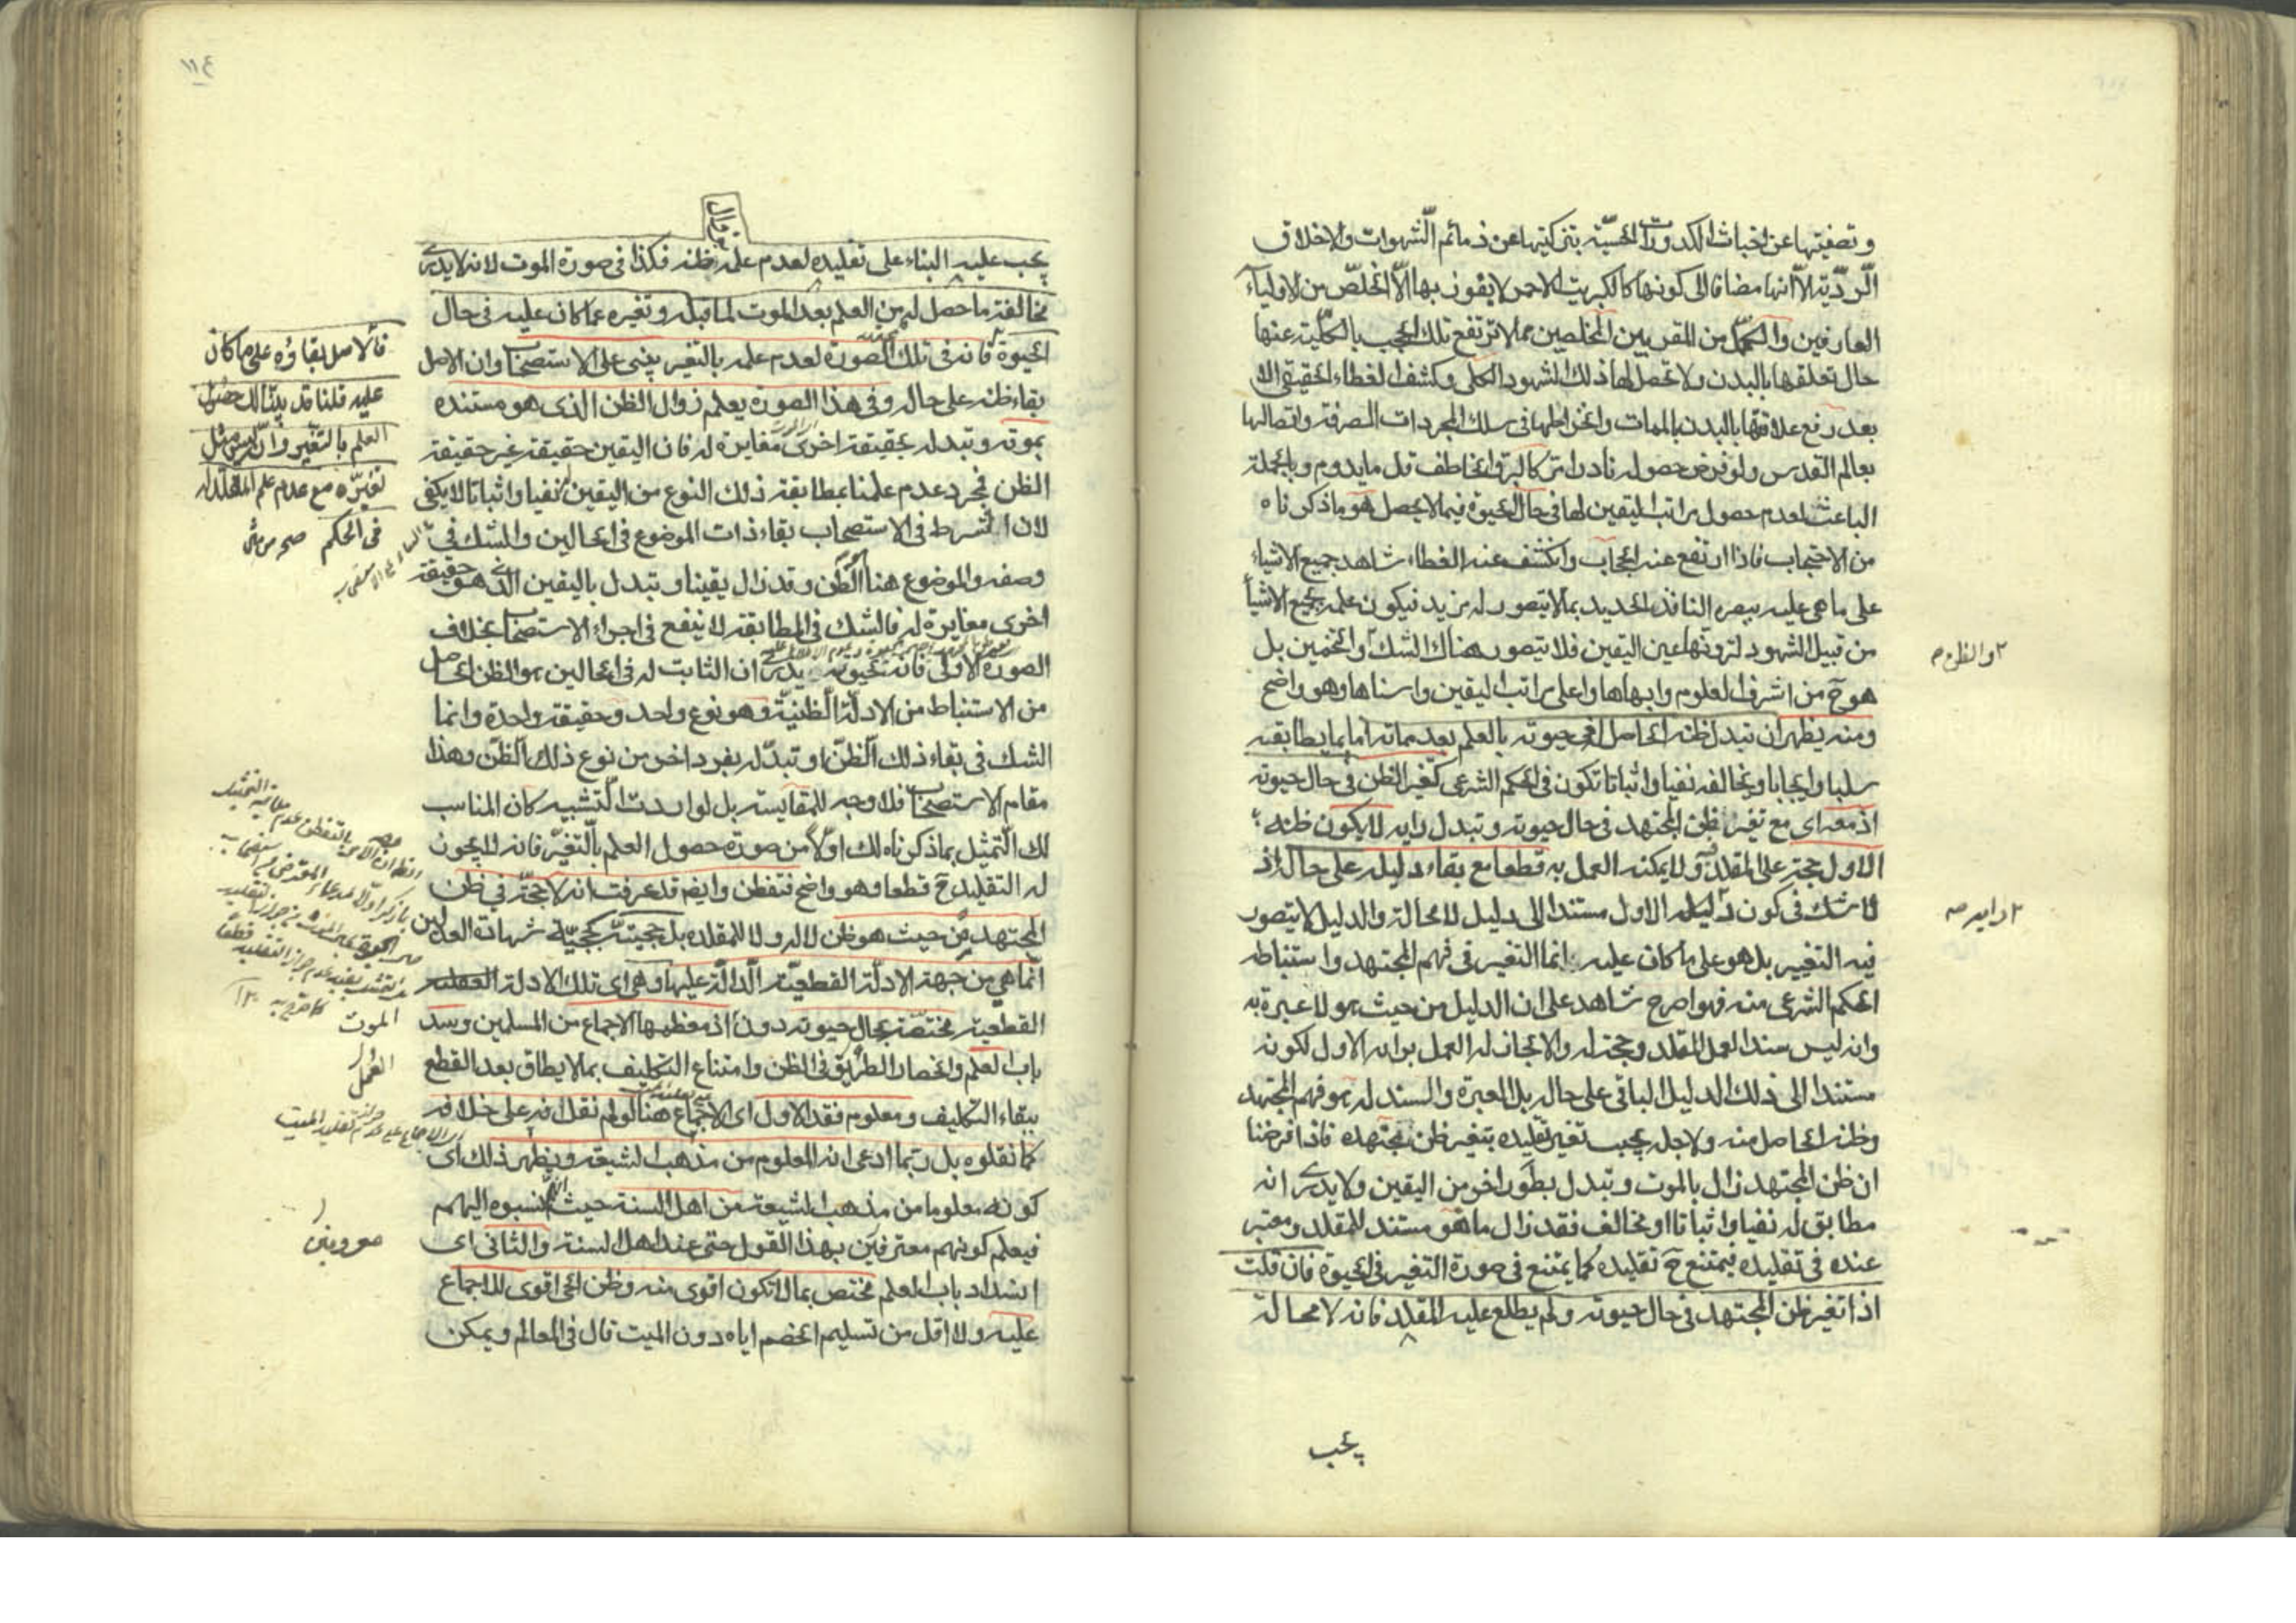 وتصفيتها عن اخباث الكدورات الحسيّة بتزكيتها عن ذمائم الشهوات والاخلاق
الرّديّة الّا انها مضافا الى كونها كالكبريت الاحمر لا يفوز بها الّا الخلّص من الاولياء
العارفين والكمّل من المقربين المخلصين مما لا ترتفع تلك الحجب بالكلية عنها
حال تعلقها بالبدن ولا تحصل لها ذلك الشهود الكلى وكشف الغطاء الحقيقى الا
بعد رفع علاقتها بالبدن بالممات وانخراطها فى سلك المجردات الصرفة واتصالها
بعالم القدس ولو فرض حصوله نادرا تركالبرق الخاطف قل ما يدوم وبالجملة
الباعث لعدم حصول مراتب اليقين لها فى حال الحيوة فيما لا يحصل هو ما ذكرناه
من الاحتجاب فاذا ارتفع عنه الحجاب وانكشف عنه الغطاء شاهد جميع الاشياء
على ما هى عليه ببصره النافذ الحديد بما لا يتصور له مزيد فيكون علمه بجميع الاشياء
من قبيل الشهود لرؤيتها عين اليقين فلا يتصور هناك الشك والتخمين بل
٢ والظن صح
هو ح من اشرف العلوم وابهاها واعلى مراتب اليقين واسناها وهو واضح
ومنه يظهر ان تبدل ظنه الحاصل فى حيوته بالعلم بعد مماته اما بما يطابقه
سلبا وايجابا ويخالفه نفيا واثباتا تكون فى الحكم الشرعى كتغير الظن فى حال حيوته
اذ معه اى مع تغير ظن المجتهد فى حال حيوته وتبدل رايه لا يكون ظنه
الاول حجة على المقلد ولا يمكنه العمل به قطعا مع بقاء دليله على حاله اذ
لا شك فى كون دليله الاول مستندا الى دليل لا محالة والدليل لا يتصور
٢ رايه صح
فيه التغيير بل هو على ما كان عليه انما التغير فى فهم المجتهد واستنباطه
الحكم الشرعى منه فهو اصرح شاهد على ان الدليل من حيث هو لا عبرة به
وانه ليس سندا لعمل المقلد وحجة له والا لجاز له العمل برايه الاول لكونه
مستندا الى ذلك الدليل الباقى على حاله بل العبرة والسند له هو فهم المجتهد
وظنه الحاصل منه ولاجله يجب تغير تقليده بتغير ظن مجتهده فاذا فرضنا
ان ظن المجتهد زال بالموت وتبدل بطور اخر من اليقين ولا يدرى انه
مطابق له نفيا واثباتا او مخالف فقد زال ما هو مستند للمقلد ومعتبر
عنده فى تقليده فيمتنع ح تقليده كما يمتنع فى صورة التغير فى الحيوة فان قلت
اذا تغير ظن المجتهد فى حال حيوته ولم يطلع عليه المقلد فانه لا محالة
يجب
١١٤
يجب عليه البناء على تقليده لعدم علمه بظنه فكذا فى صورة الموت لانه لا يدرى
مخالفة ما حصل له من العلم بعد الموت لما قبله وتغيره عما كان عليه فى حال
الحيوة فانه فى تلك الصورة لعدم علمه بالتغير يبنى على الاستصحاب وان الاصل
بقاء ظنه على حاله وفى هذا الصورة يعلم زوال الظن الذى هو مستنده
بموته وتبدله بحقيقة اخرى مغايرة له فان اليقين حقيقة غير حقيقة
الظن فمجرد عدم علمنا بمطابقة ذلك النوع من اليقين له نفيا واثباتا لا يكفى
لان الشرط فى الاستصحاب بقاء ذات الموضوع فى الحالين والشك فى
وصفه والموضوع هنا الظن وقد زال يقينا وتبدل باليقين الذى هو حقيقة
اخرى مغايرة له فالشك فى المطابقة لا ينفع فى اجراء الاستصحاب بخلاف
الصورة الاولى فانه بحيوته يدرى ان الثابت له فى الحالين هو الظن الحاصل
من الاستنباط من الادلّة الظنيّة وهو نوع واحد وحقيقة واحدة وانما
الشك فى بقاء ذلك الظنّ او تبدّله بفرد اخر من نوع ذلك الظنّ وهذا
مقام الاستصحاب فلا وجه للمقايسة بل لو اردت التشبيه كان المناسب
لك التمثيل بما ذكرناه لك اولا من صورة حصول العلم بالتغيّر فانه لا يجوز
له التقليد ح قطعا وهو واضح فتفطن وايضا قد عرفت انه لا حجّة فى ظن
المجتهد من حيث هو ظن لا له ولا للمقلد بل حجيته كحجيّة شهادة العدلين
انما هى من جهة الادلّة القطعيّة الدالّة عليها وهى اى تلك الادلة
القطعية مختصّة بحال حيوته دون اذ معظمها الاجماع من المسلمين وسد
باب العلم وانحصار الطريق فى الظن وامتناع التكليف بما لا يطاق بعد القطع
ببقاء التكليف ومعلوم فقد الاول اى الاجماع هنا لو لم نقل انه على خلافه
كما نقلوه بل ربما ادعى انه المعلوم من مذهب الشيعة ويظهر ذلك اى
كونه معلوما من مذهب الشيعة من اهل السنة حيث نسبوه اليهم
فيعلم كونهم معترفين بهذا القول حتى عند اهل السنة والثانى اى
انسداد باب العلم مختص بما لا تكون اقوى منه وظن الحى اقوى للاجماع
عليه ولا اقل من تسليم الخصم اياه دون الميت قال فى المعالم ويمكن
فالاصل بقاؤه على ما كان
عليه قلنا قد بيّنا لك حصول
العلم بالتغير وان ليس مثل
تغيّره مع عدم علم المقلد له
فى الحكم صح
الموت
العمل
معروفين